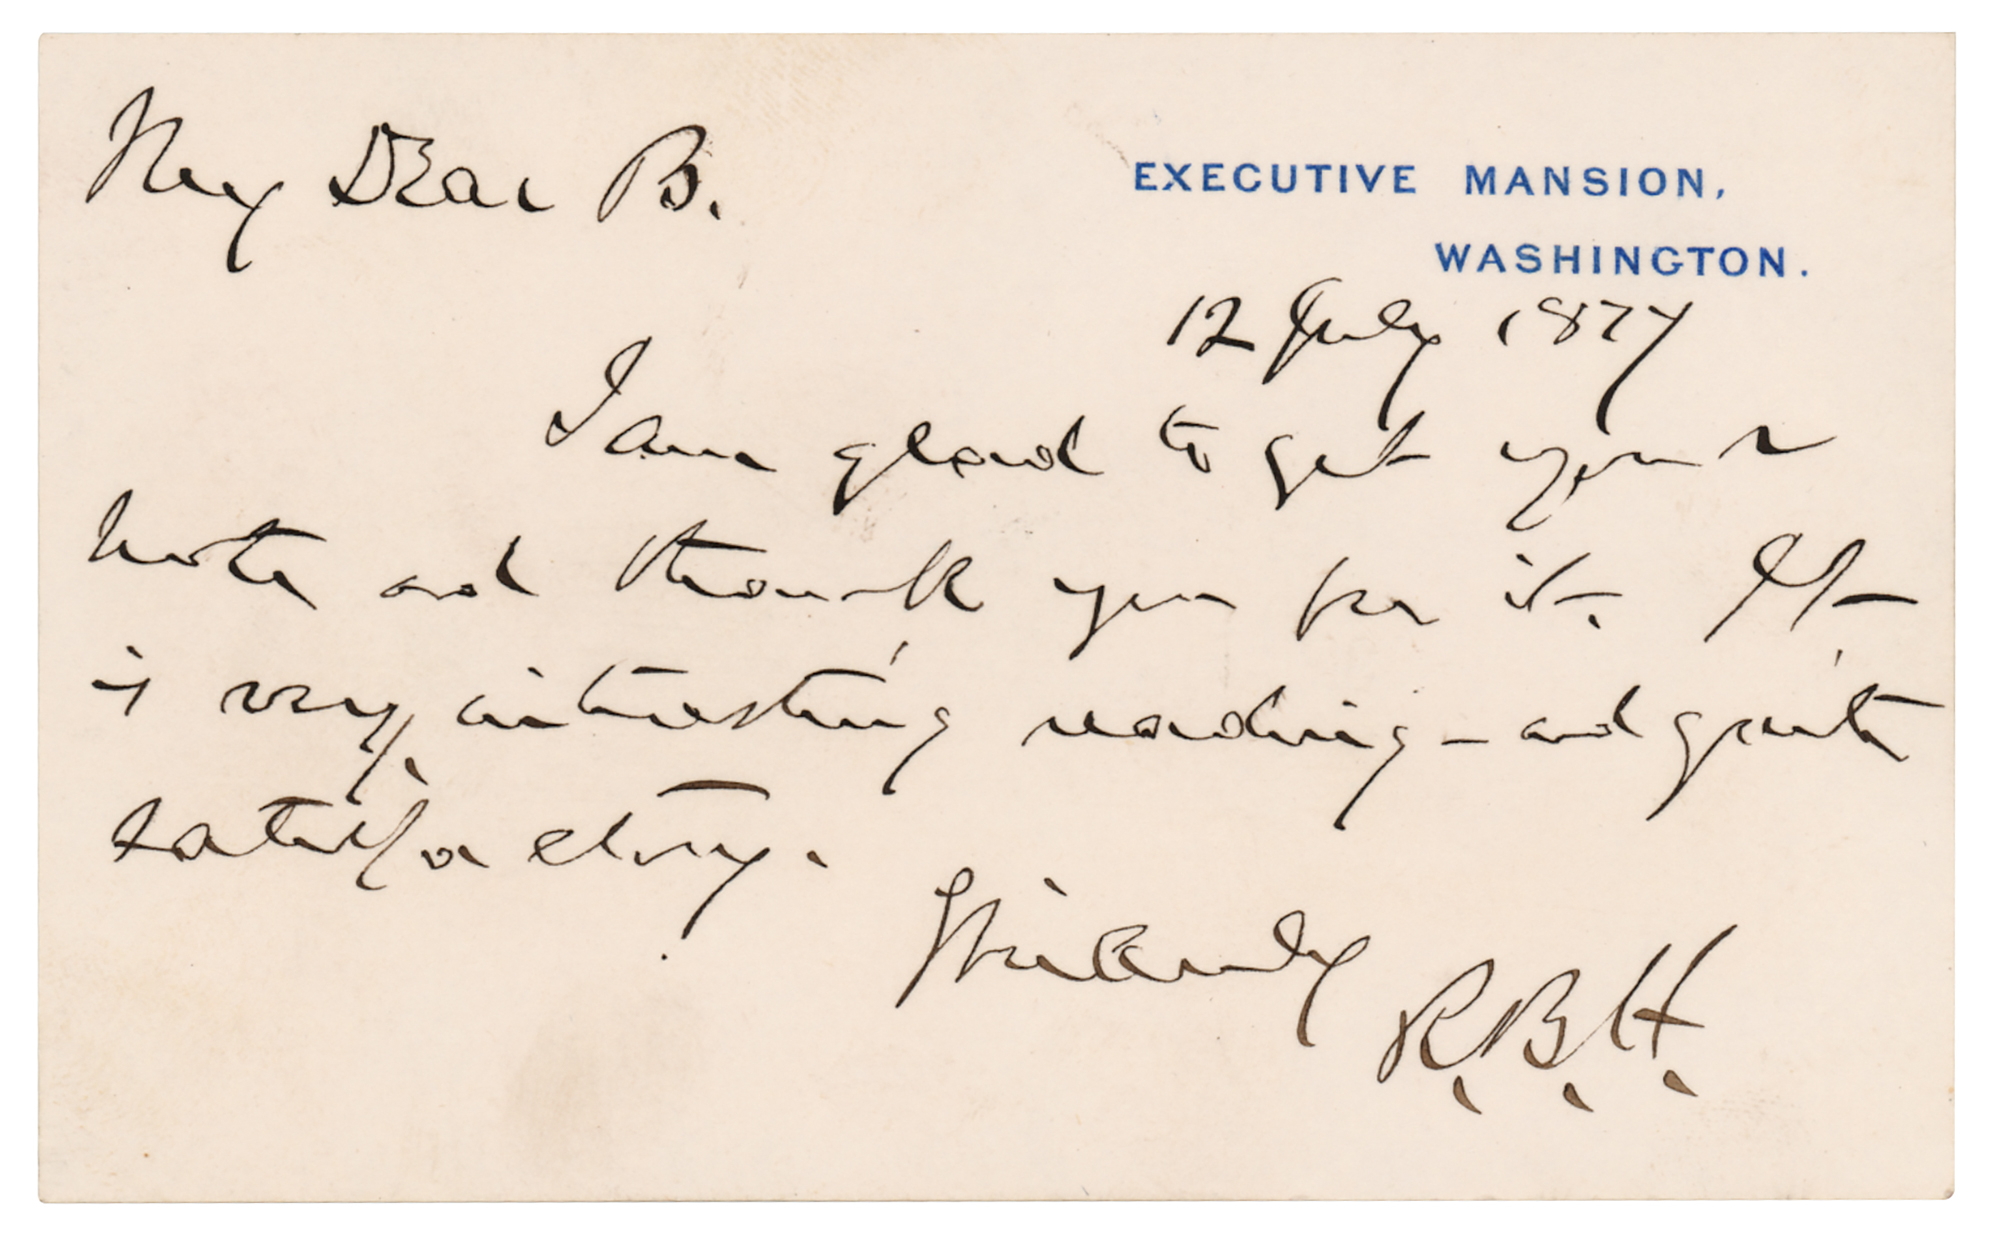 My Dear B.
EXECUTIVE MANSION,
WASHINGTON.
12 July 1877
I am glad to get your
note and thank you for it. It
is very interesting reading - and quite
satisfactory.
Sincerely
R.B.H.